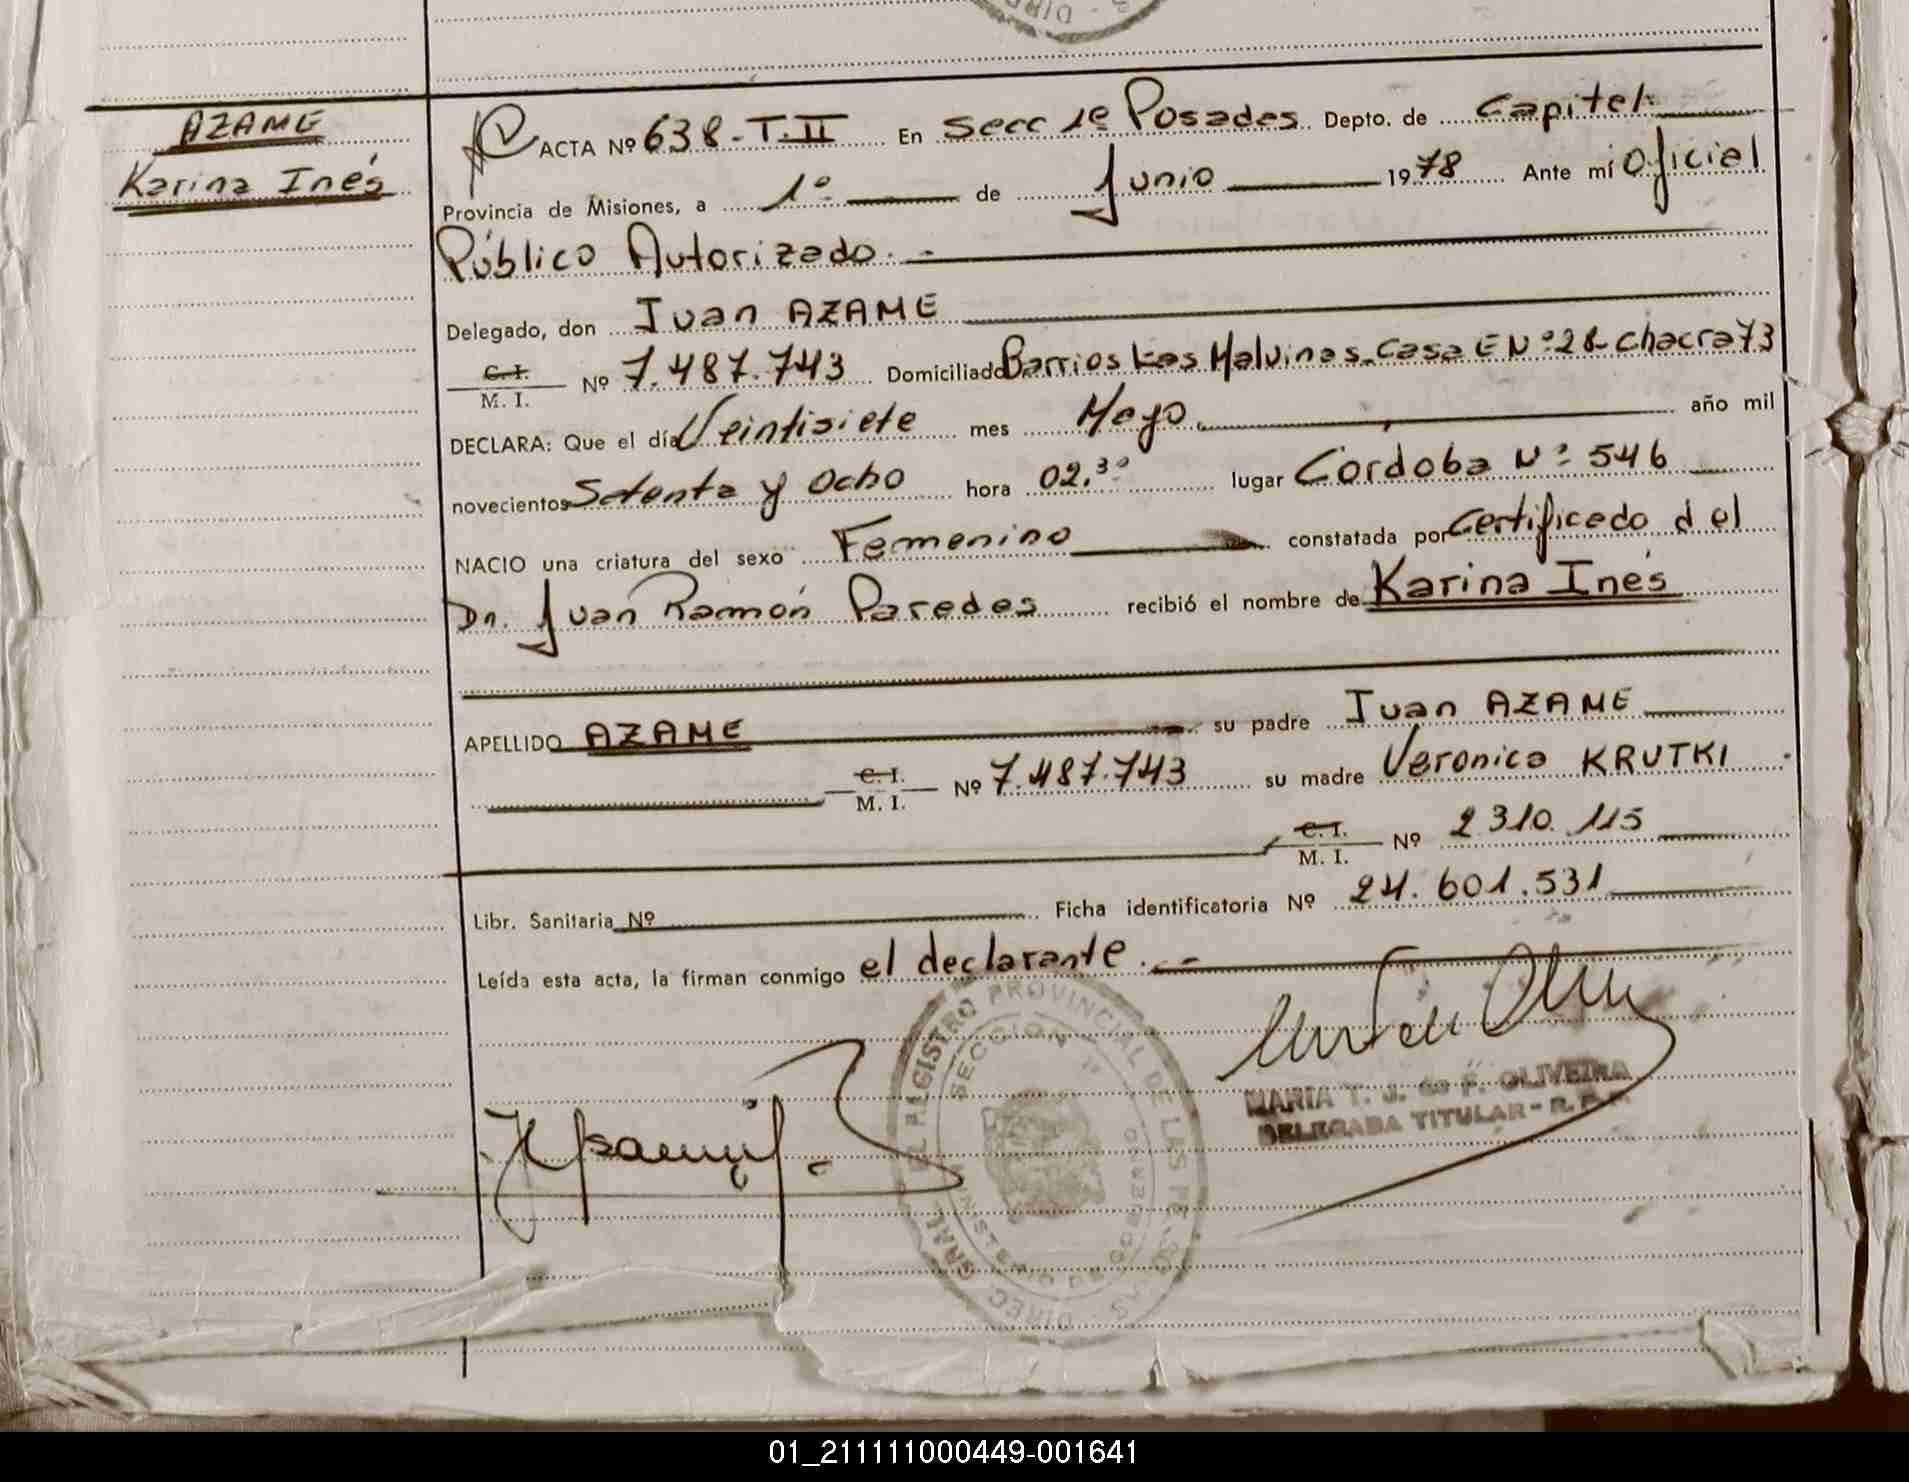 AZAME
Karina Inés
ACTA Nº 638-T.II En Secc 1º Posadas Depto. de Capital
Provincia de Misiones, a 1º de Junio 1978 Ante mí Oficial
Público Autorizado.-
Delegado, don Juan AZAME
C.I.
M. I. Nº 7.487.743 Domiciliado Barrios Las Malvinas Casa E Nº 28 chacra 73
DECLARA: Que el día Veintisiete mes Mayo año mil
novecientos Setenta y Ocho hora 02.30 lugar Cordoba Nº 546
NACIO una criatura del sexo Femenino constatada por Certificado del
Dr. Juan Ramón Paredes recibió el nombre de Karina Inés
APELLIDO AZAME su padre Juan AZAME
C.I.
M. I. Nº 7.487.743 su madre Veronica KRUTKI
C.I.
M. I. Nº 2310.115
Libr. Sanitaria Nº Ficha identificatoria Nº 24.601.531
Leída esta acta, la firman conmigo el declarante.-
DIREC. GRAL. DEL REGISTRO PROVINCIAL DE LAS PERSONAS
SECCION 1ª
MINISTERIO DE GOBIERNO
MARIA T. J. de F. OLIVEIRA
DELEGADA TITULAR - R.P.P.
01_211111000449-001641